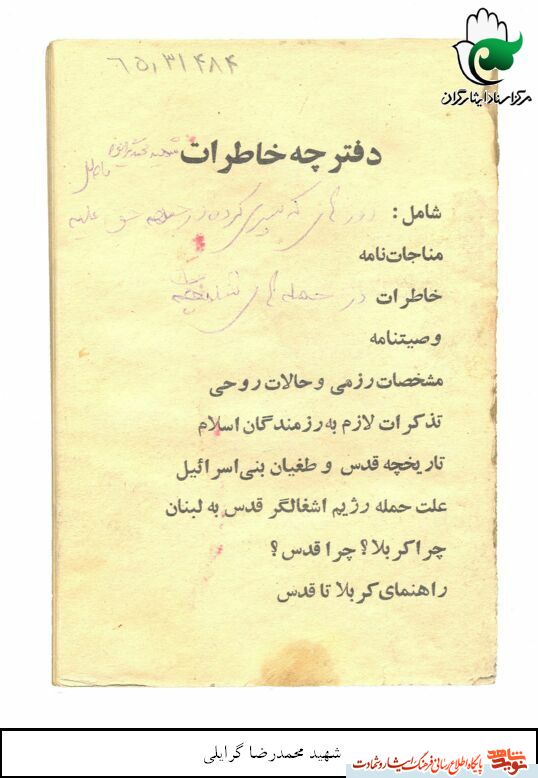 مرکز اسناد ایثارگران
۶۵٫۳۱۴۸۴
دفترچه خاطرات شهید
شامل: که سپری کرده در حق علیه
مناجات‌نامه
خاطرات در های
وصیتنامه
مشخصات رزمی و حالات روحی
تذکرات لازم به رزمندگان اسلام
تاریخچه قدس و طغیان بنی‌اسرائیل
علت حمله رژیم اشغالگر قدس به لبنان
چرا کربلا؟ چرا قدس؟
راهنمای کربلا تا قدس
شهید محمدرضا گرایلی
نوید شاهد پایگاه اطلاع رسانی فرهنگ ایثار و شهادت